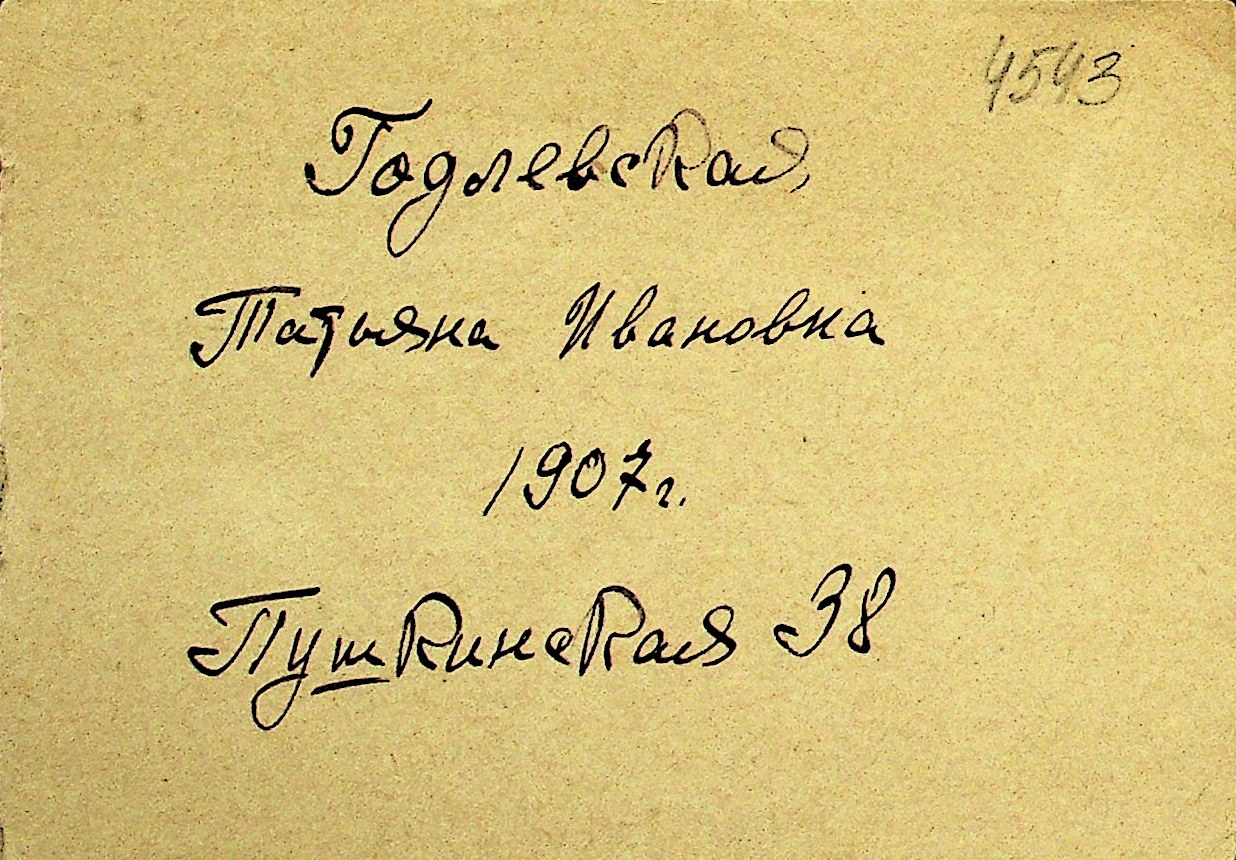 4543
Годлевская
Татьяна Ивановна
1907г.
Пушкинская 38